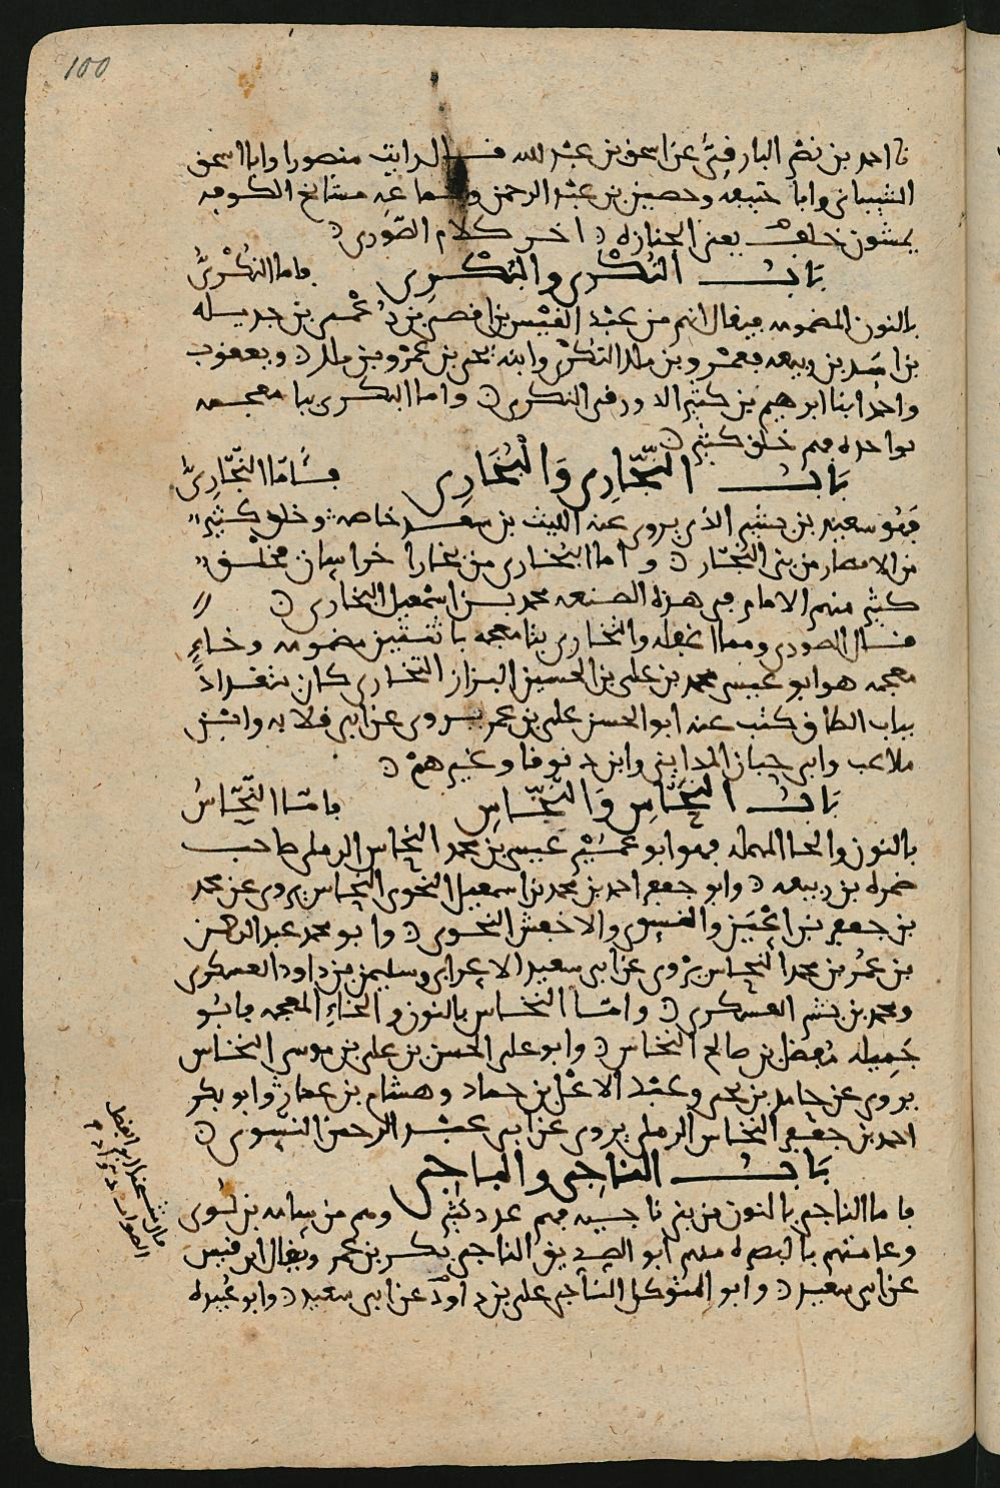 100
نا احمد بن نصر البارقي عن اسحق بن عبد الله قال رايت منصورا وابا اسحق
الشيباني وابا حنيفه وحصين بن عبد الرحمن وجماعه مشائخ الكوفه
يمشون خلف يعني الجنازه اخر كلام الصّوري
بَابُ النُّكْرى والبَكْرِى فاما النُّكْرِىُّ
بالنون المضمومه فيقال انهم من عبد القيس بن افصى بن دُعْمى بن جديله
بن اسد بن ربيعه فعمرو بن ملك النُّكرى وابنه يحى بن عمرو بن ملك ويعقوب
واحمد ابنا ابرهيم بن كثير الدورقى النكرى واما البكرى ببا معجمه
بواحده فهم خلق كثير
بَابُ النَّجّارِى وَالْبُخَارِى فَأَمّا النَّجّارِىُّ
فهو سعيد بن بشير الذى يروى عنه الليث بن سعد خاصه وخلق كثير
من الامصار من بني النجّار واما البخارى من بخارا خراسان فخلق
كثير منهم الامام في هذه الصنعه محمد بن اسمعيل البخارى
قال الصورى ومما اغفله والتخارى بتا معجمه باثنتين مضمومه وخاءٍ
معجمه هو ابو عيسى محمد بن على بن الحسين البزاز التخارى كان ببغداد
بباب الطاق كتب عنه ابو الحسن على بن عمر يروى عن ابى قلابه وابن
ملاعب وابى حيان المداينى وابن دنوقا وغيرهم
بَابُ النَّحَّاس وَالنَّخّاس فامّا النَّحّاسُ
بالنون والحا المهمله فهو ابو عُمَيْر عيسى بن محمد النحاس الرملى صاحب
ضمره بن ربيعه وابو جعفر احمد بن محمد بن اسمعيل النحوى النحاس يروى عن محمد
بن جعفر بن اعْيَن والفسوى والاخفش النحوى وابو محمد عبد الرحمن
بن عمر بن محمد النحاس يروى عن ابى سعيد الاعرابى وسليمن بن داود العسكرى
ومحمد بن بشر العسكرى وامّا النخاس بالنون والخاءِ المعجمه فابُو
جَمِيله مفضل بن صالح النخاس وابو على الحسن بن على بن موسى النخاس
يروى عن حامد بن يحى وعبد الاعلى بن حماد وهشام بن عمار وابو بكر
احمد بن جعفر النخاس الرملى يروى عن ابى عبد الرحمن النسوى
بَابُ الناجِى والباجى
فاما الناجى بالنون من بنى ناجيه فهم عدد كثير وهم من سامه بن لؤى
وعامتهم بالبصره منهم ابو الصديق الناجى بكر بن عمرو ويقال ابن قيس
عن ابى سعيد وابو المتوكل الناجى على بن داود عن ابى سعيد وابو عُبيده
قال شيخنا ابو الفضل
الصواب دؤاد